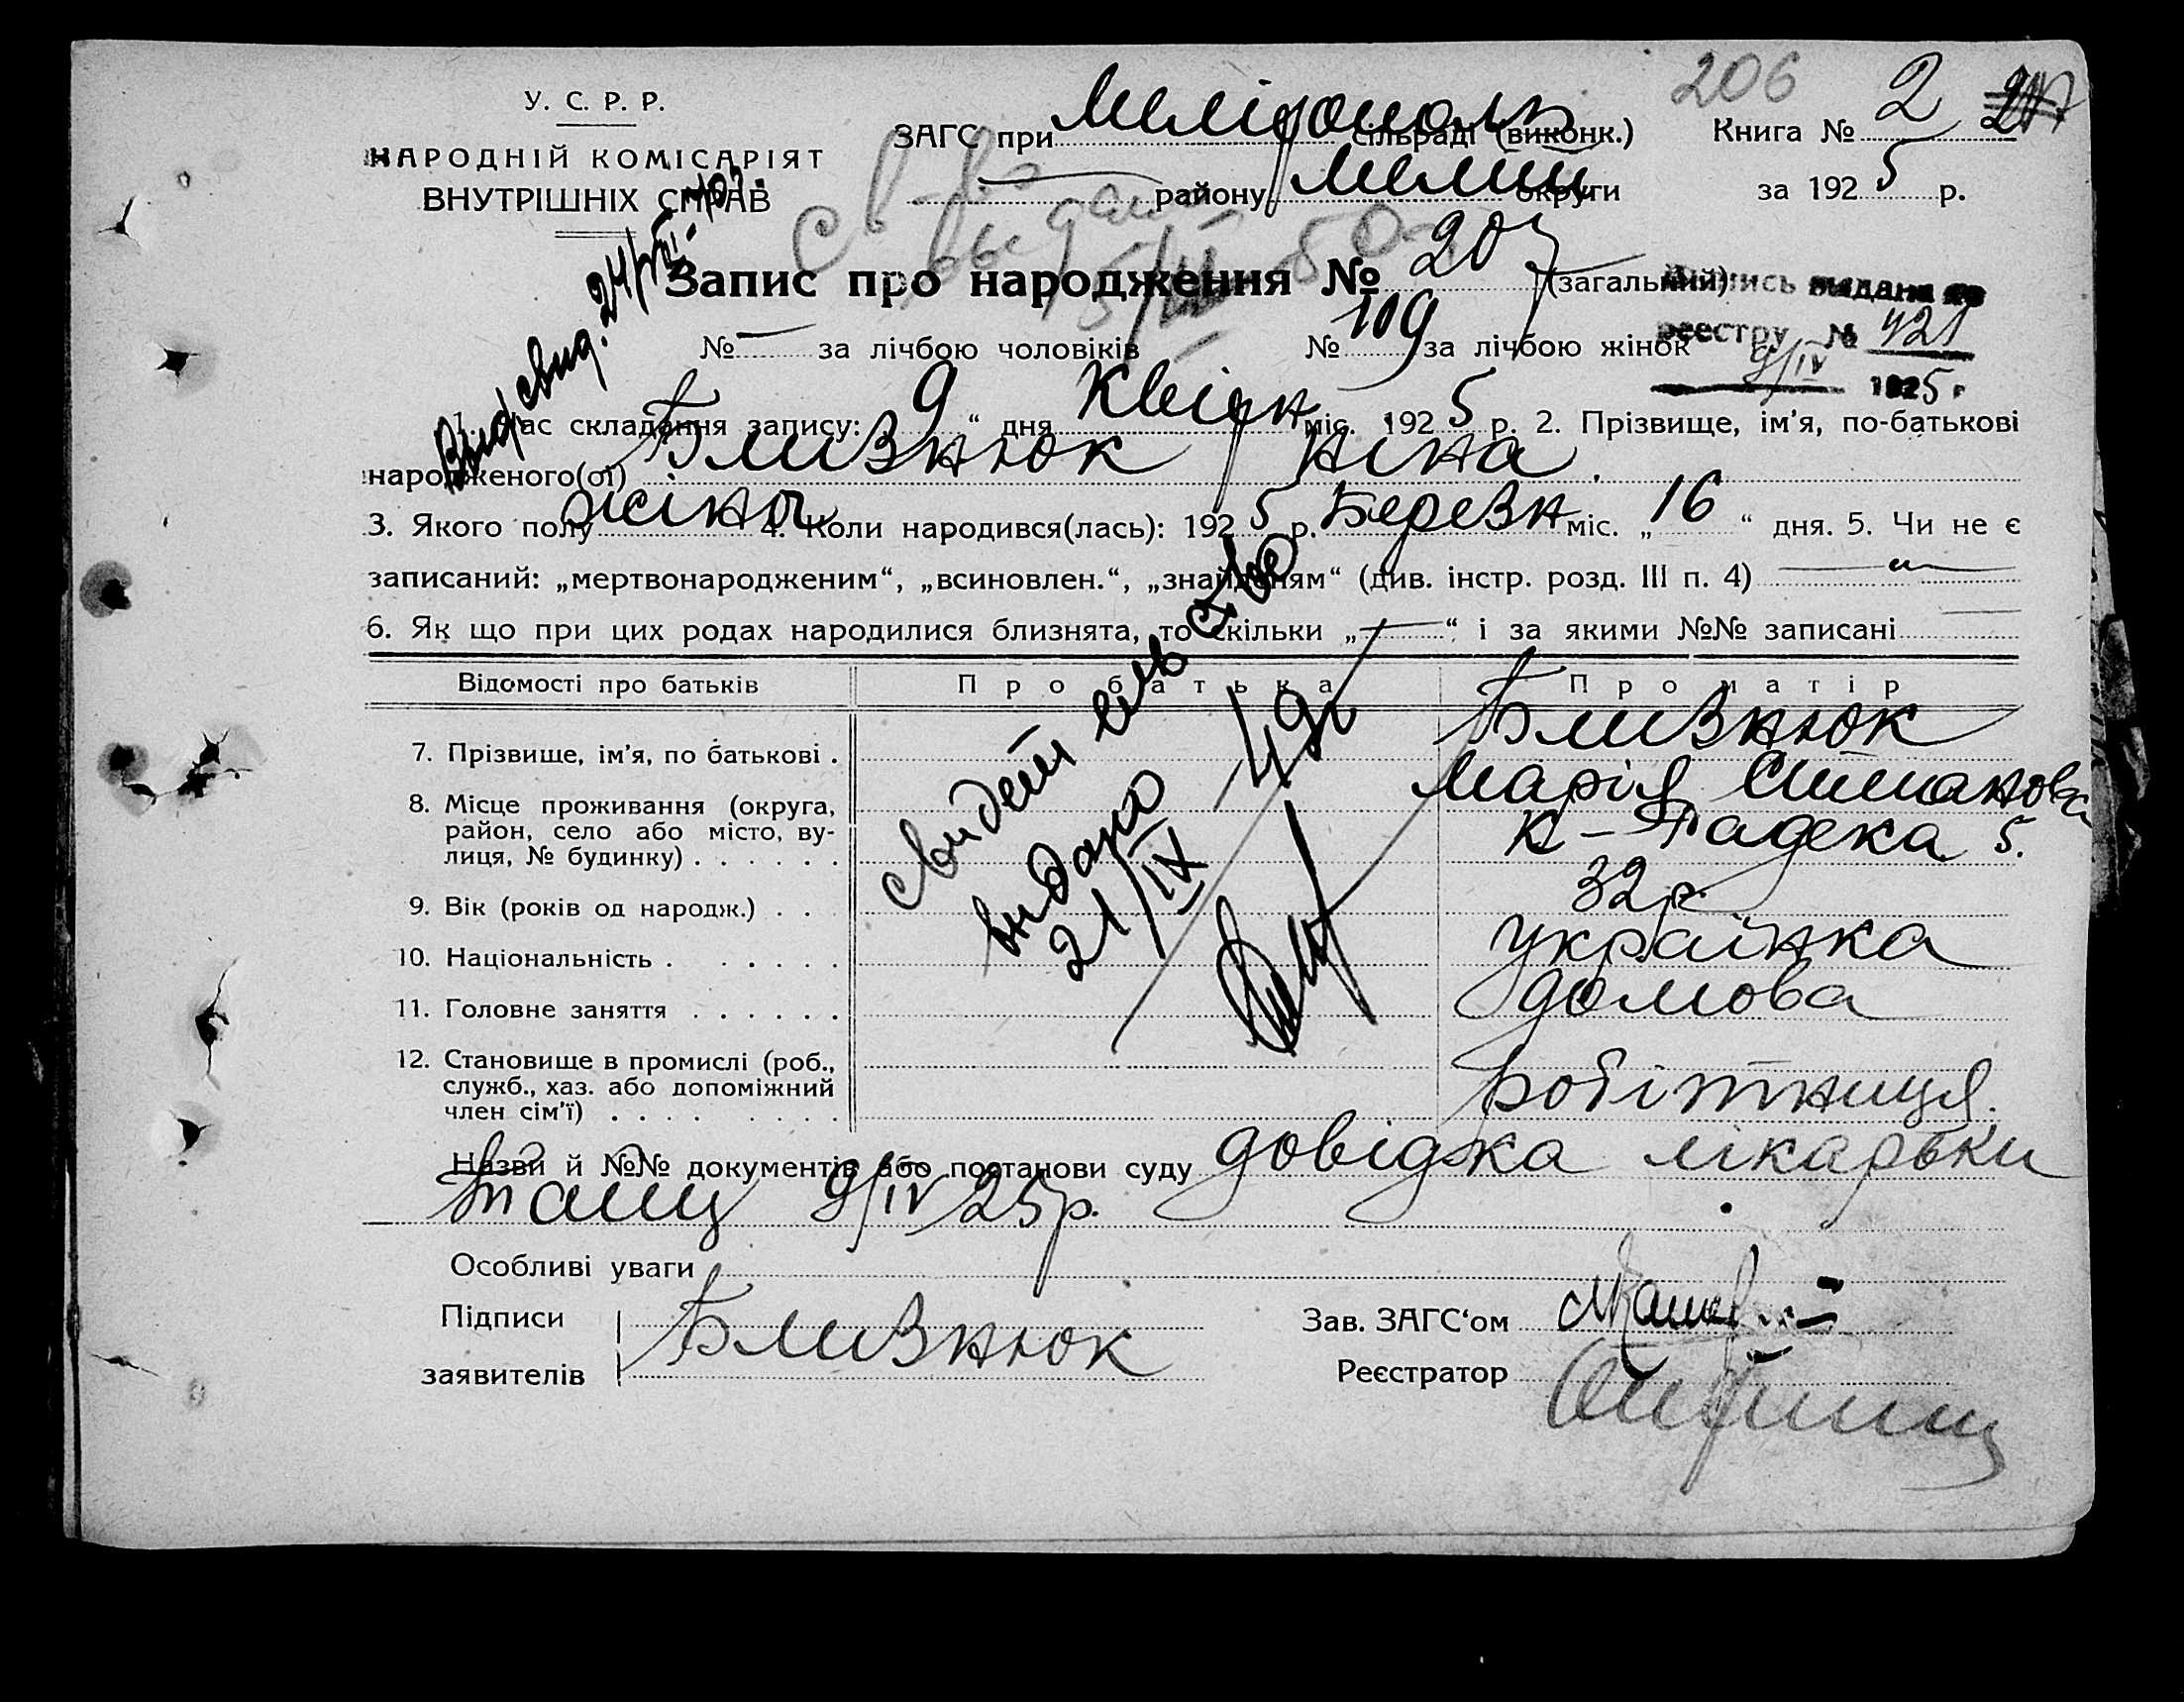 206
У. С. Р. Р.
НАРОДНІЙ КОМІСАРІЯТ
ВНУТРІШНІХ СПРАВ
ЗАГС при Мелітополь сільраді (виконк.)
— району округи
Книга № 2
за 1925 р.
Св-во выдано
Запис про народження № 207 (загальний)
выдана по
реестру № 421
9/IV 1925 г.
№ — за лічбою чоловіків № 109 за лічбою жінок
1. Час складання запису: 9 “ дня Квітн міс. 1925 р. 2. Прізвище, ім’я, по-батькові
народженого(ої) Близнюк Ніна.
3. Якого полу жіноч 4. Коли народився(лась): 1925 р. Березн міс. „16“ дня. 5. Чи не є
записаний: „мертвонародженим“, „всиновлен.“, „знайденям“ (див. інстр. розд. III п. 4) —
6. Як що при цих родах народилися близнята, то скільки „—“ і за якими №№ записані —
Відомості про батьків Про батька Про матір
7. Прізвище, ім’я, по батькові . Близнюк
Марія
8. Місце проживання (округа,
район, село або місто, ву-
лиця, № будинку) . . . . . . К-Радека 5.
9. Вік (років од народж.) . . . 32 р.
10. Національність . . . . . . українка
11. Головне заняття . . . . . . домова
12. Становище в промислі (роб.,
служб., хаз. або допоміжний
член сім’ї) . . . . . . . . робітниця.
Свидетельство
выдано
21/IX - 49г
Назви й №№ документів або постанови суду довідка лікарьки
9/IV 25 р.
Особливі уваги
Підписи
заявителів Близнюк
Зав. ЗАГС‘ом
Реєстратор